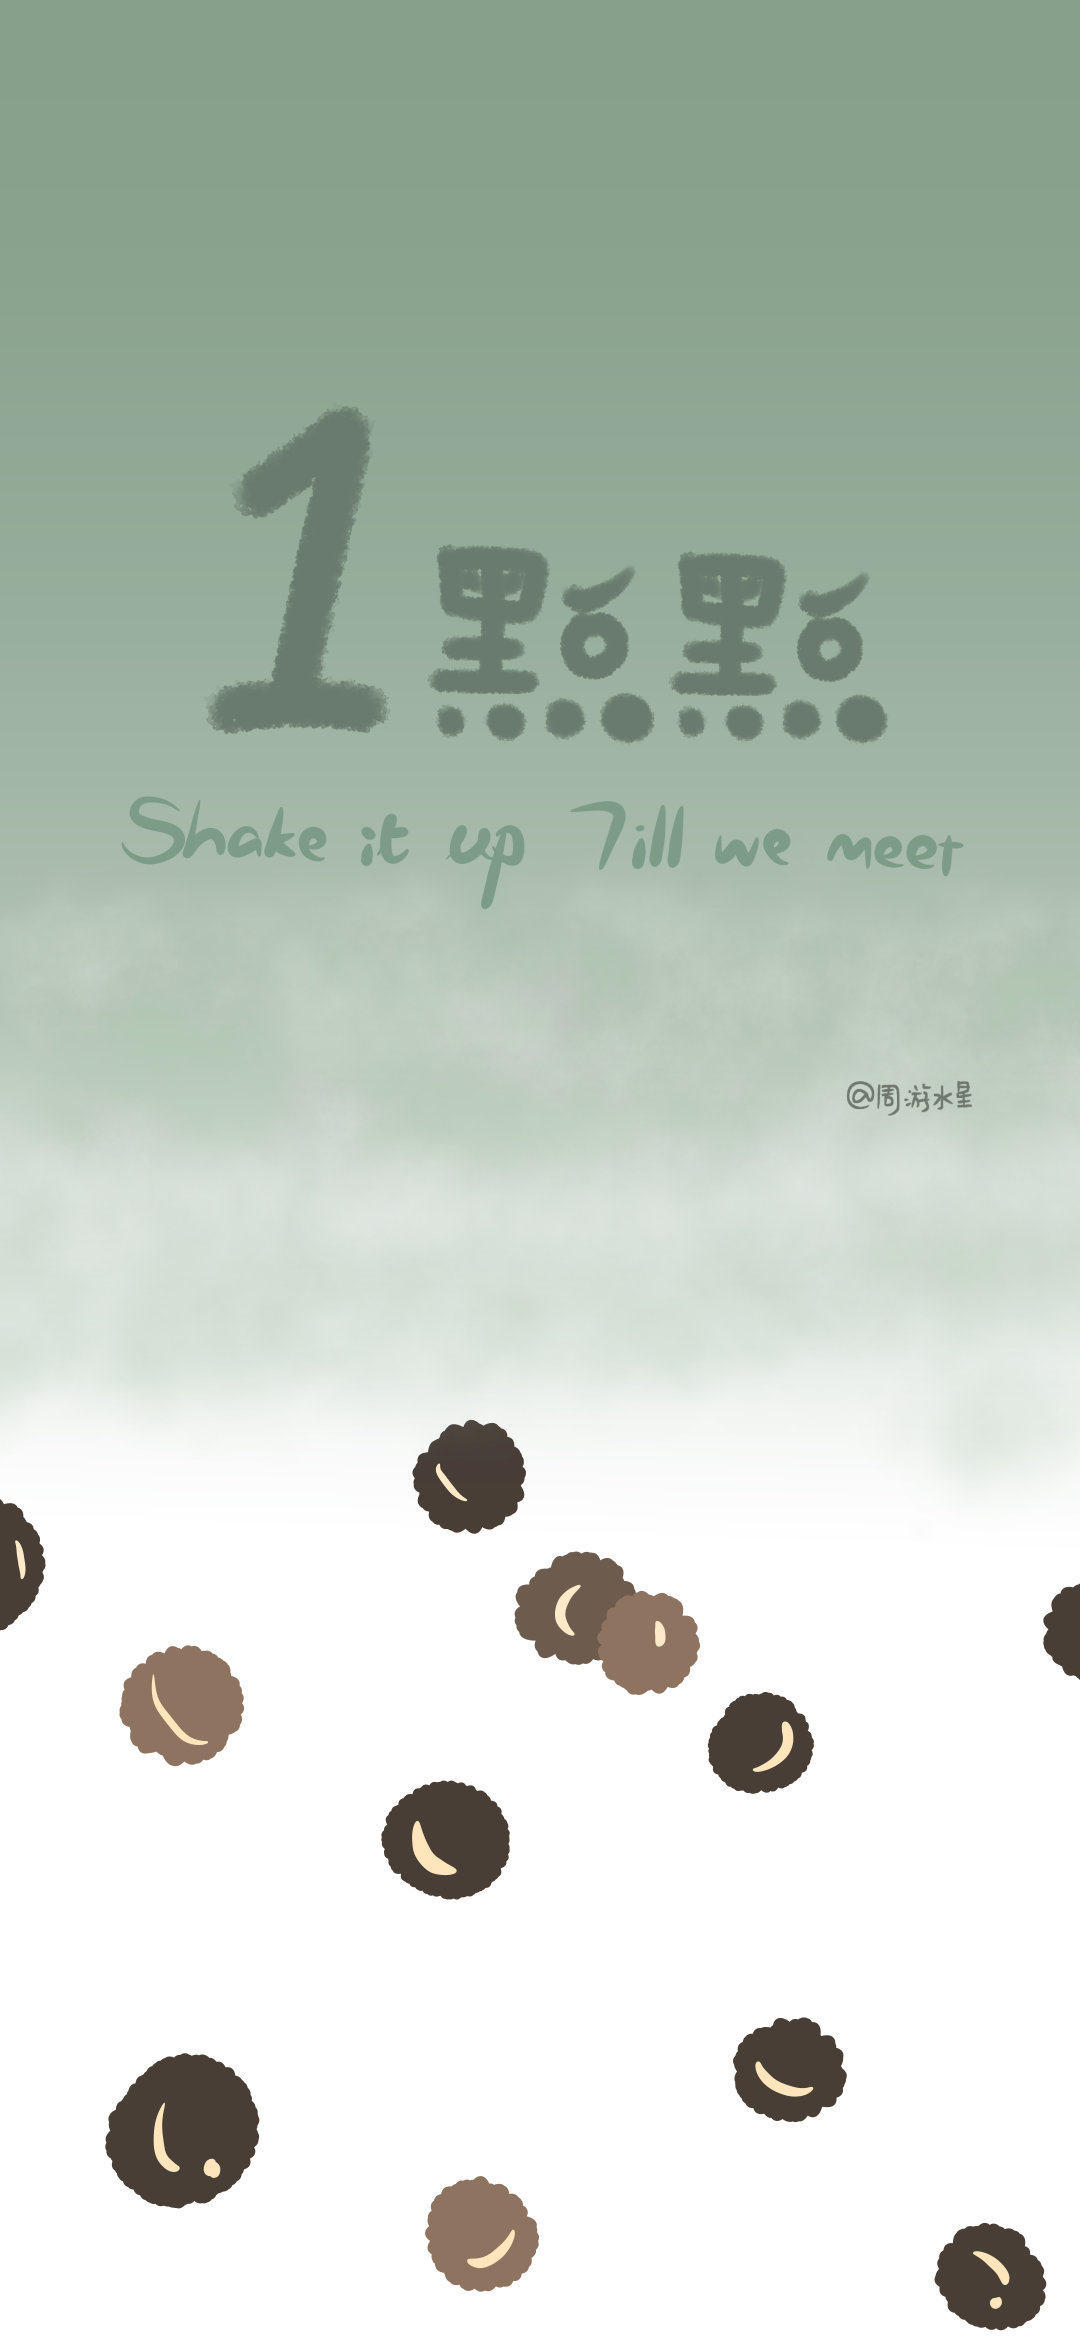 1點點
Shake it up Till we meet
@周游水星